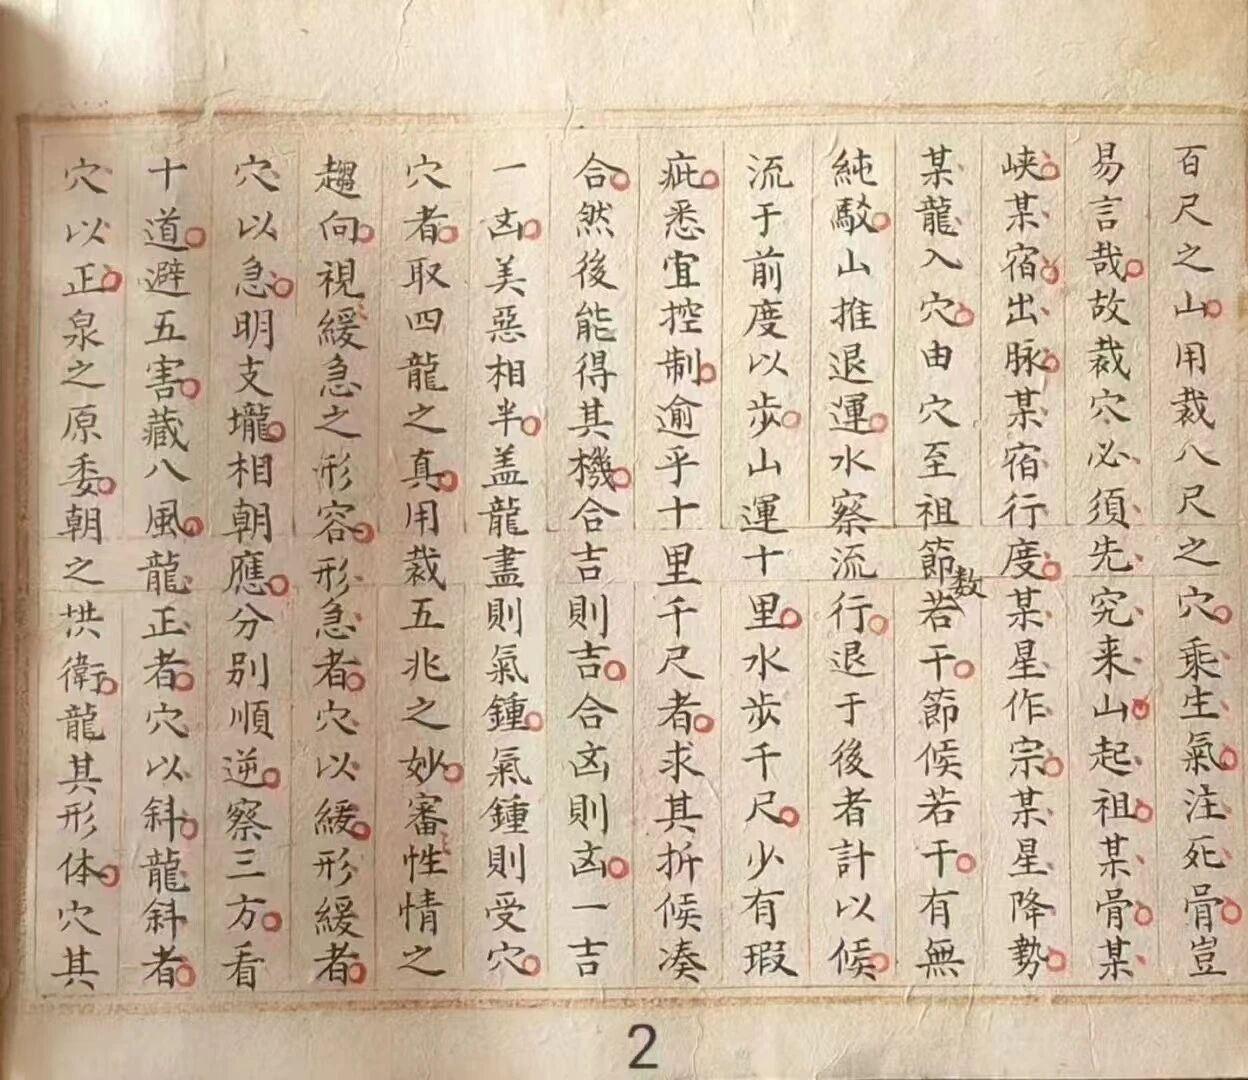 百尺之山用裁八尺之穴乘生氣注死骨豈
易言哉故裁穴必須先究来山起祖某骨某
峡某宿出脉某宿行度某星作宗某星降勢
某龍入穴由穴至祖節数若干節候若干有無
純駁山推退運水察流行退于後者計以候
流于前度以步山運十里水步千尺少有瑕
疵悉宜控制逾乎十里千尺者求其折候凑
合然後能得其機合吉則吉合凶則凶一吉
一凶美惡相半盖龍盡則氣鍾氣鍾則受穴
穴者取四龍之真用裁五兆之妙審性情之
趨向視緩急之形容形急者穴以緩形緩者
穴以急明支壠相朝應分别順逆察三方看
十道避五害藏八風龍正者穴以斜龍斜者
穴以正泉之原委朝之拱衛龍其形体穴其
2